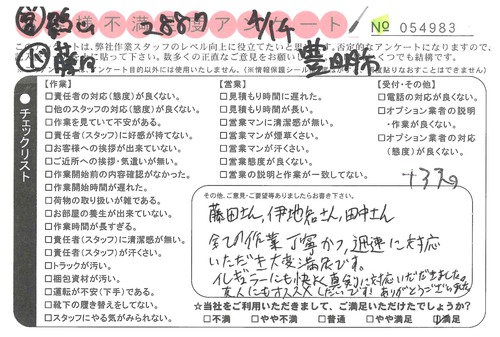 営 鶴
2887 4/14
お客様不満足度アンケート
№ 054983
小 藤
豊田市
※アンケート目的以外には使用いたしません。
チェックリスト
【作業】
□責任者の対応(態度)が良くない。
□他のスタッフの対応(態度)が良くない。
□作業を見ていて不安がある。
□責任者(スタッフ)に好感が持てない。
□お客様への挨拶が出来ていない。
□ご近所への挨拶・気遣いが無い。
□作業開始前の内容確認がなかった。
□作業開始時間が遅れた。
□荷物の取り扱いが雑である。
□お部屋の養生が出来ていない。
□作業時間が長すぎる。
□責任者(スタッフ)に清潔感が無い。
□責任者(スタッフ)が汗くさい。
□トラックが汚い。
□梱包資材が汚い。
□運転が不安(下手)である。
□靴下の履き替えをしてない。
□スタッフにやる気がみられない。
【営業】
□見積もり時間に遅れた。
□見積もり時間が長い。
□営業マンに清潔感が無い。
□営業マンが煙草くさい。
□営業マンが汗くさい。
□営業態度が良くない。
□営業の説明と作業が一致してない。
【受付・その他】
□電話の対応が良くない。
□オプション業者の説明
・作業が良くない。
□オプション業者の対応
(態度)が良くない。
その他、ご意見・ご要望等ありましたらお書き下さい。
藤田さん,伊地智さん,田中さん
全ての作業丁寧かつ,迅速に対応
いただき大変満足です。
イレギュラーにも快く真剣に対応いただきました。
友人にもオススメしたいです! ありがとうございました
☆当社をご利用いただきまして、ご満足いただけたでしょうか?
□不満 □やや不満 □普通 □やや満足 ☑満足